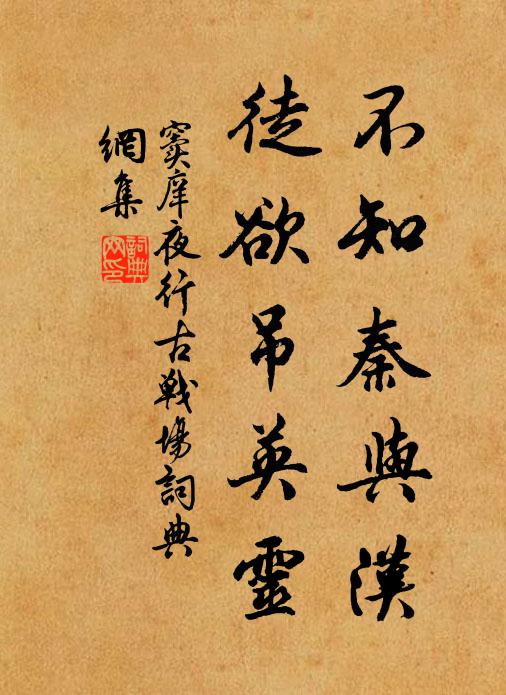 不知秦與漢
徒欲吊英靈
窦庠夜行古戰場詞典
網集
詞典
网印